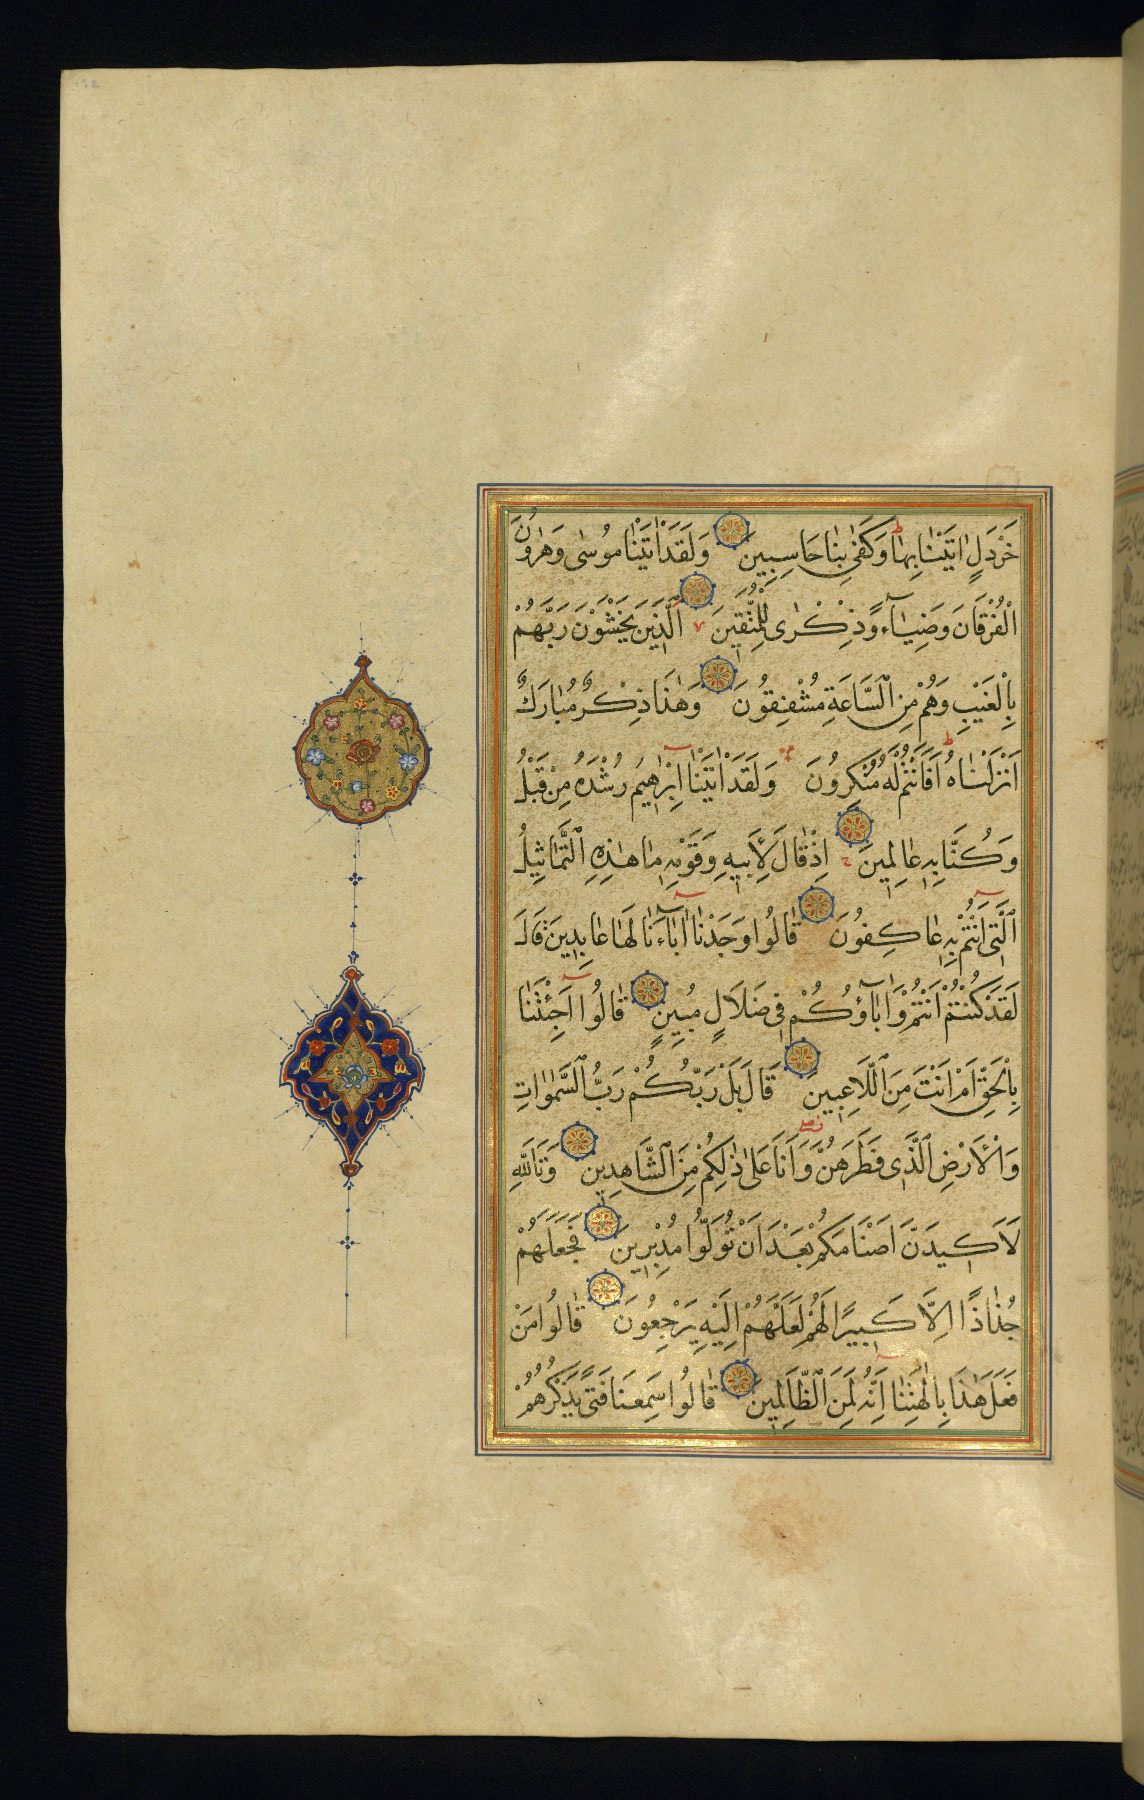 خَرْدَلٍ اَتَيْنَا بِهَا وَكَفٰى بِنَا حَاسِبِينَ وَلَقَدْ اٰتَيْنَا مُوسٰى وَهٰرُونَ
الْفُرْقَانَ وَضِيَآءً وَذِكْرٰى لِلْمُتَّقِينَ الَّذِينَ يَخْشَوْنَ رَبَّهُمْ
بِالْغَيْبِ وَهُمْ مِنَ السَّاعَةِ مُشْفِقُونَ وَهٰذَا ذِكْرٌ مُبَارَكٌ
اَنْزَلْنَاهُ اَفَاَنْتُمْ لَهُ مُنْكِرُونَ وَلَقَدْ اٰتَيْنَا اِبْرٰهِيمَ رُشْدَهُ مِنْ قَبْلُ
وَكُنَّا بِهِ عَالِمِينَ اِذْ قَالَ لِاَبِيهِ وَقَوْمِهِ مَا هٰذِهِ التَّمَاثِيلُ
الَّتِى اَنْتُمْ بِهِ عَاكِفُونَ قَالُوا وَجَدْنَا اٰبَآءَنَا لَهَا عَابِدِينَ قَالَ
لَقَدْ كُنْتُمْ اَنْتُمْ وَاٰبَآؤُكُمْ فِى ضَلَالٍ مُبِينٍ قَالُوا اَجِئْتَنَا
بِالْحَقِّ اَمْ اَنْتَ مِنَ اللَّاعِبِينَ قَالَ بَلْ رَبُّكُمْ رَبُّ السَّمٰوَاتِ
وَالْاَرْضِ الَّذِى فَطَرَهُنَّ وَاَنَا عَلٰى ذٰلِكُمْ مِنَ الشَّاهِدِينَ وَتَاللّٰهِ
لَاَكِيدَنَّ اَصْنَامَكُمْ بَعْدَ اَنْ تُوَلُّوا مُدْبِرِينَ فَجَعَلَهُمْ
جُذَاذًا اِلَّا كَبِيرًا لَهُمْ لَعَلَّهُمْ اِلَيْهِ يَرْجِعُونَ قَالُوا مَنْ
فَعَلَ هٰذَا بِاٰلِهَتِنَا اِنَّهُ لَمِنَ الظَّالِمِينَ قَالُوا سَمِعْنَا فَتًى يَذْكُرُهُمْ